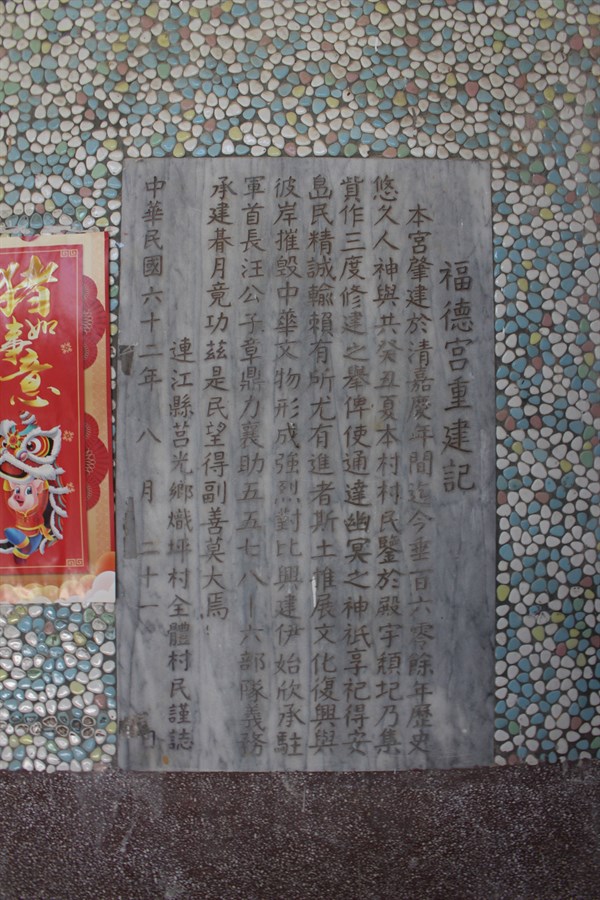 福德宮重建記
本宮肇建於清嘉慶年間迄今垂一百六零餘年歷史
悠久人神與共癸丑夏本村村民鑒於殿宇頹圮乃集
貲作三度修建之舉俾使通達幽冥之神祇享祀得安
島民精誠輸賴有所尤有進者斯土推展文化復興與
彼岸摧毀中華文物形成強烈對比興建伊始欣承駐
軍首長汪公子章鼎力襄助五五七八－六部隊義務
承建朞月竟功茲是民望得副善莫大焉
連江縣莒光鄉熾坪村全體村民謹誌
中華民國六十二年八月二十一日
豬
如
事
意